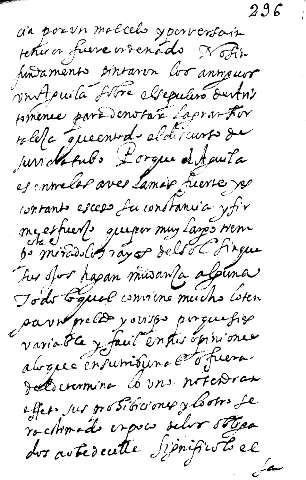 296
cia por un malcelo y perversa in
tencion fuere ordenado No sin
fundamento pintaron los antiguos
un Aguila sobre el sepulcro de Aris
tomene para denotar la gran for
taleza que en todo el discurso de
su vida tubo Porque el Aguila
es entre las aves la mas fuerte y es
con tanto exceso su constancia y fir
me esfuerço que por muy largo tiem
po este mirando los rayos del sol sin que
sus ojos hagan mudança alguna
Todo lo qual conviene mucho lo ten
ga un prelado y obispo porque si es
variable y facil en sus opiniones
a lo que en su tribunal o fuera
del determina lo uno no tendran
effeto sus prohibiciones y lo otro se
ra estimado en poco de los obliga
dos a obedecelle Significolo el
Sa